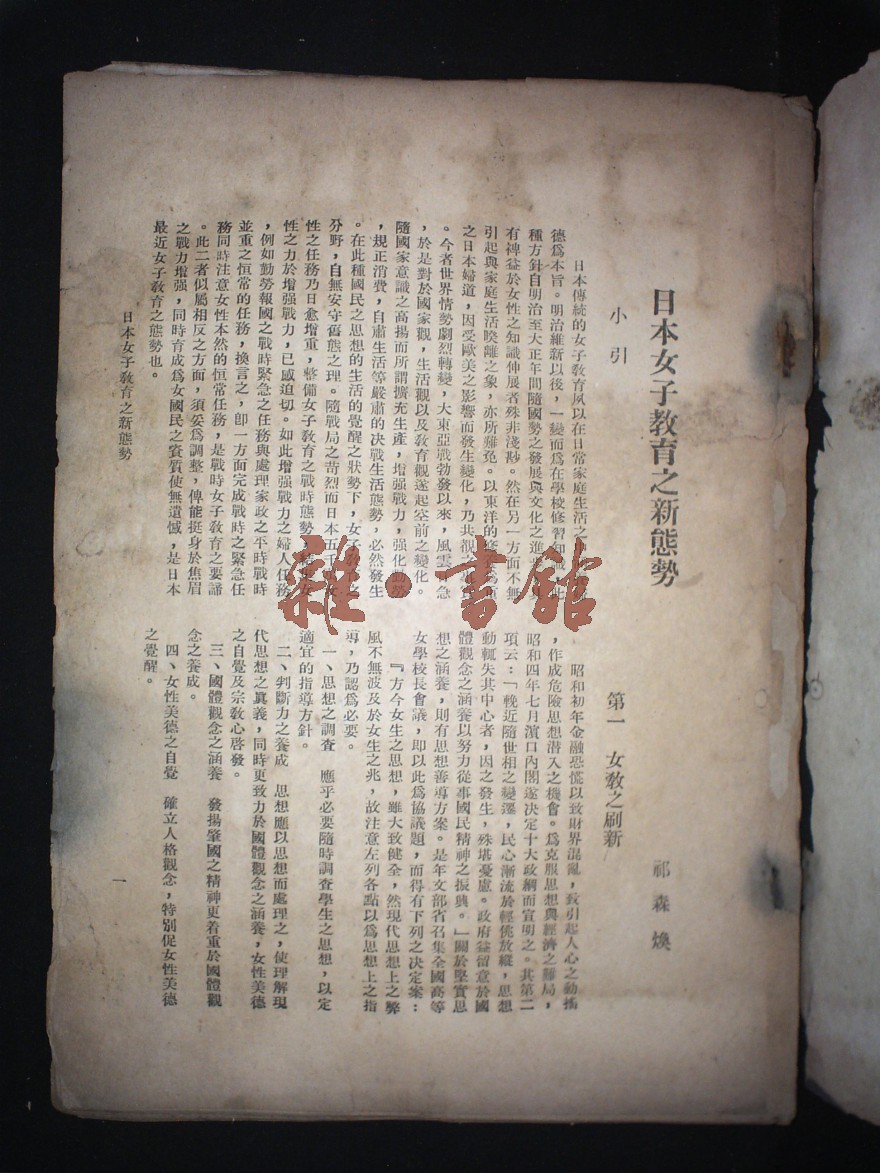 日本女子教育之新態勢
祁森煥
小引
日本傳統的女子教育夙以在日常家庭生活之
德爲本旨。明治維新以後，一變而爲在學校修習知識，此
種方針自明治至大正年間隨國勢之發展與文化之進
有裨益於女性之知識伸展者殊非淺尠。然在另一方面不無
引起與家庭生活暌離之象，亦所難免。以東洋的
之日本婦道，因受歐美之影響而發生變化，乃共
。今者世界情勢劇烈轉變，大東亞戰勃發以來，風雲急
，於是對於國家觀，生活觀以及教育觀遂起空前之變化。
隨國家意識之高揚而所謂擴充生產，增强戰力，强化勤勞
，規正消費，自肅生活等嚴肅的決戰生活態勢，必然發生
。在此種國民之思想的生活的覺醒之狀勢下，女子教育之
分野，自無安守舊態之理。隨戰局之苛烈而日本五千萬女
性之任務乃日愈增重，整備女子教育之戰時態勢，
性之力於增强戰力，已感迫切。如此增强戰力之婦人任務
，例如勤勞報國之戰時緊急之任務與處理家政之平時戰時
並重之恒常的任務，換言之，卽一方面完成戰時之緊急任
務同時注意女性本然的恒常任務，是戰時女子教育之要諦
。此二者似屬相反之方面，須妥爲調整，俾能挺身於焦眉
之戰力增强，同時育成爲女國民之資質使無遺憾，是日本
最近女子教育之態勢也。
第一　女教之刷新
昭和初年金融恐慌以致財界混亂，致引起人心之動搖
，作成危險思想潛入之機會。爲克服思想與經濟之難局，
昭和四年七月濱口內閣遂決定十大政綱而宣明之。其第二
項云：「輓近隨世相之變遷，民心漸流於輕佻放縱，思想
動輒失其中心者，因之發生，殊堪憂慮。政府益留意於國
體觀念之涵養以努力從事國民精神之振興。」關於堅實思
想之涵養，則有思想善導方案。是年文部省召集全國高等
女學校長會議，卽以此爲協議題，而得有下列之決定案：
『方今女生之思想，雖大致健全，然現代思想上之弊
風不無波及於女生之兆，故注意左列各點以爲思想上之指
導，乃認爲必要。
一、思想之調查　應乎必要隨時調查學生之思想，以定
適宜的指導方針。
二、判斷力之養成　思想應以思想而處理之，使理解現
代思想之眞義，同時更致力於國體觀念之涵養，女性美德
之自覺及宗教心啓發。
三、國體觀念之涵養　發揚肇國之精神更着重於國體觀
念之養成。
四、女性美德之自覺　確立人格觀念，特別促女性美德
之覺醒。
日本女子教育之新態勢
一
雜·書館